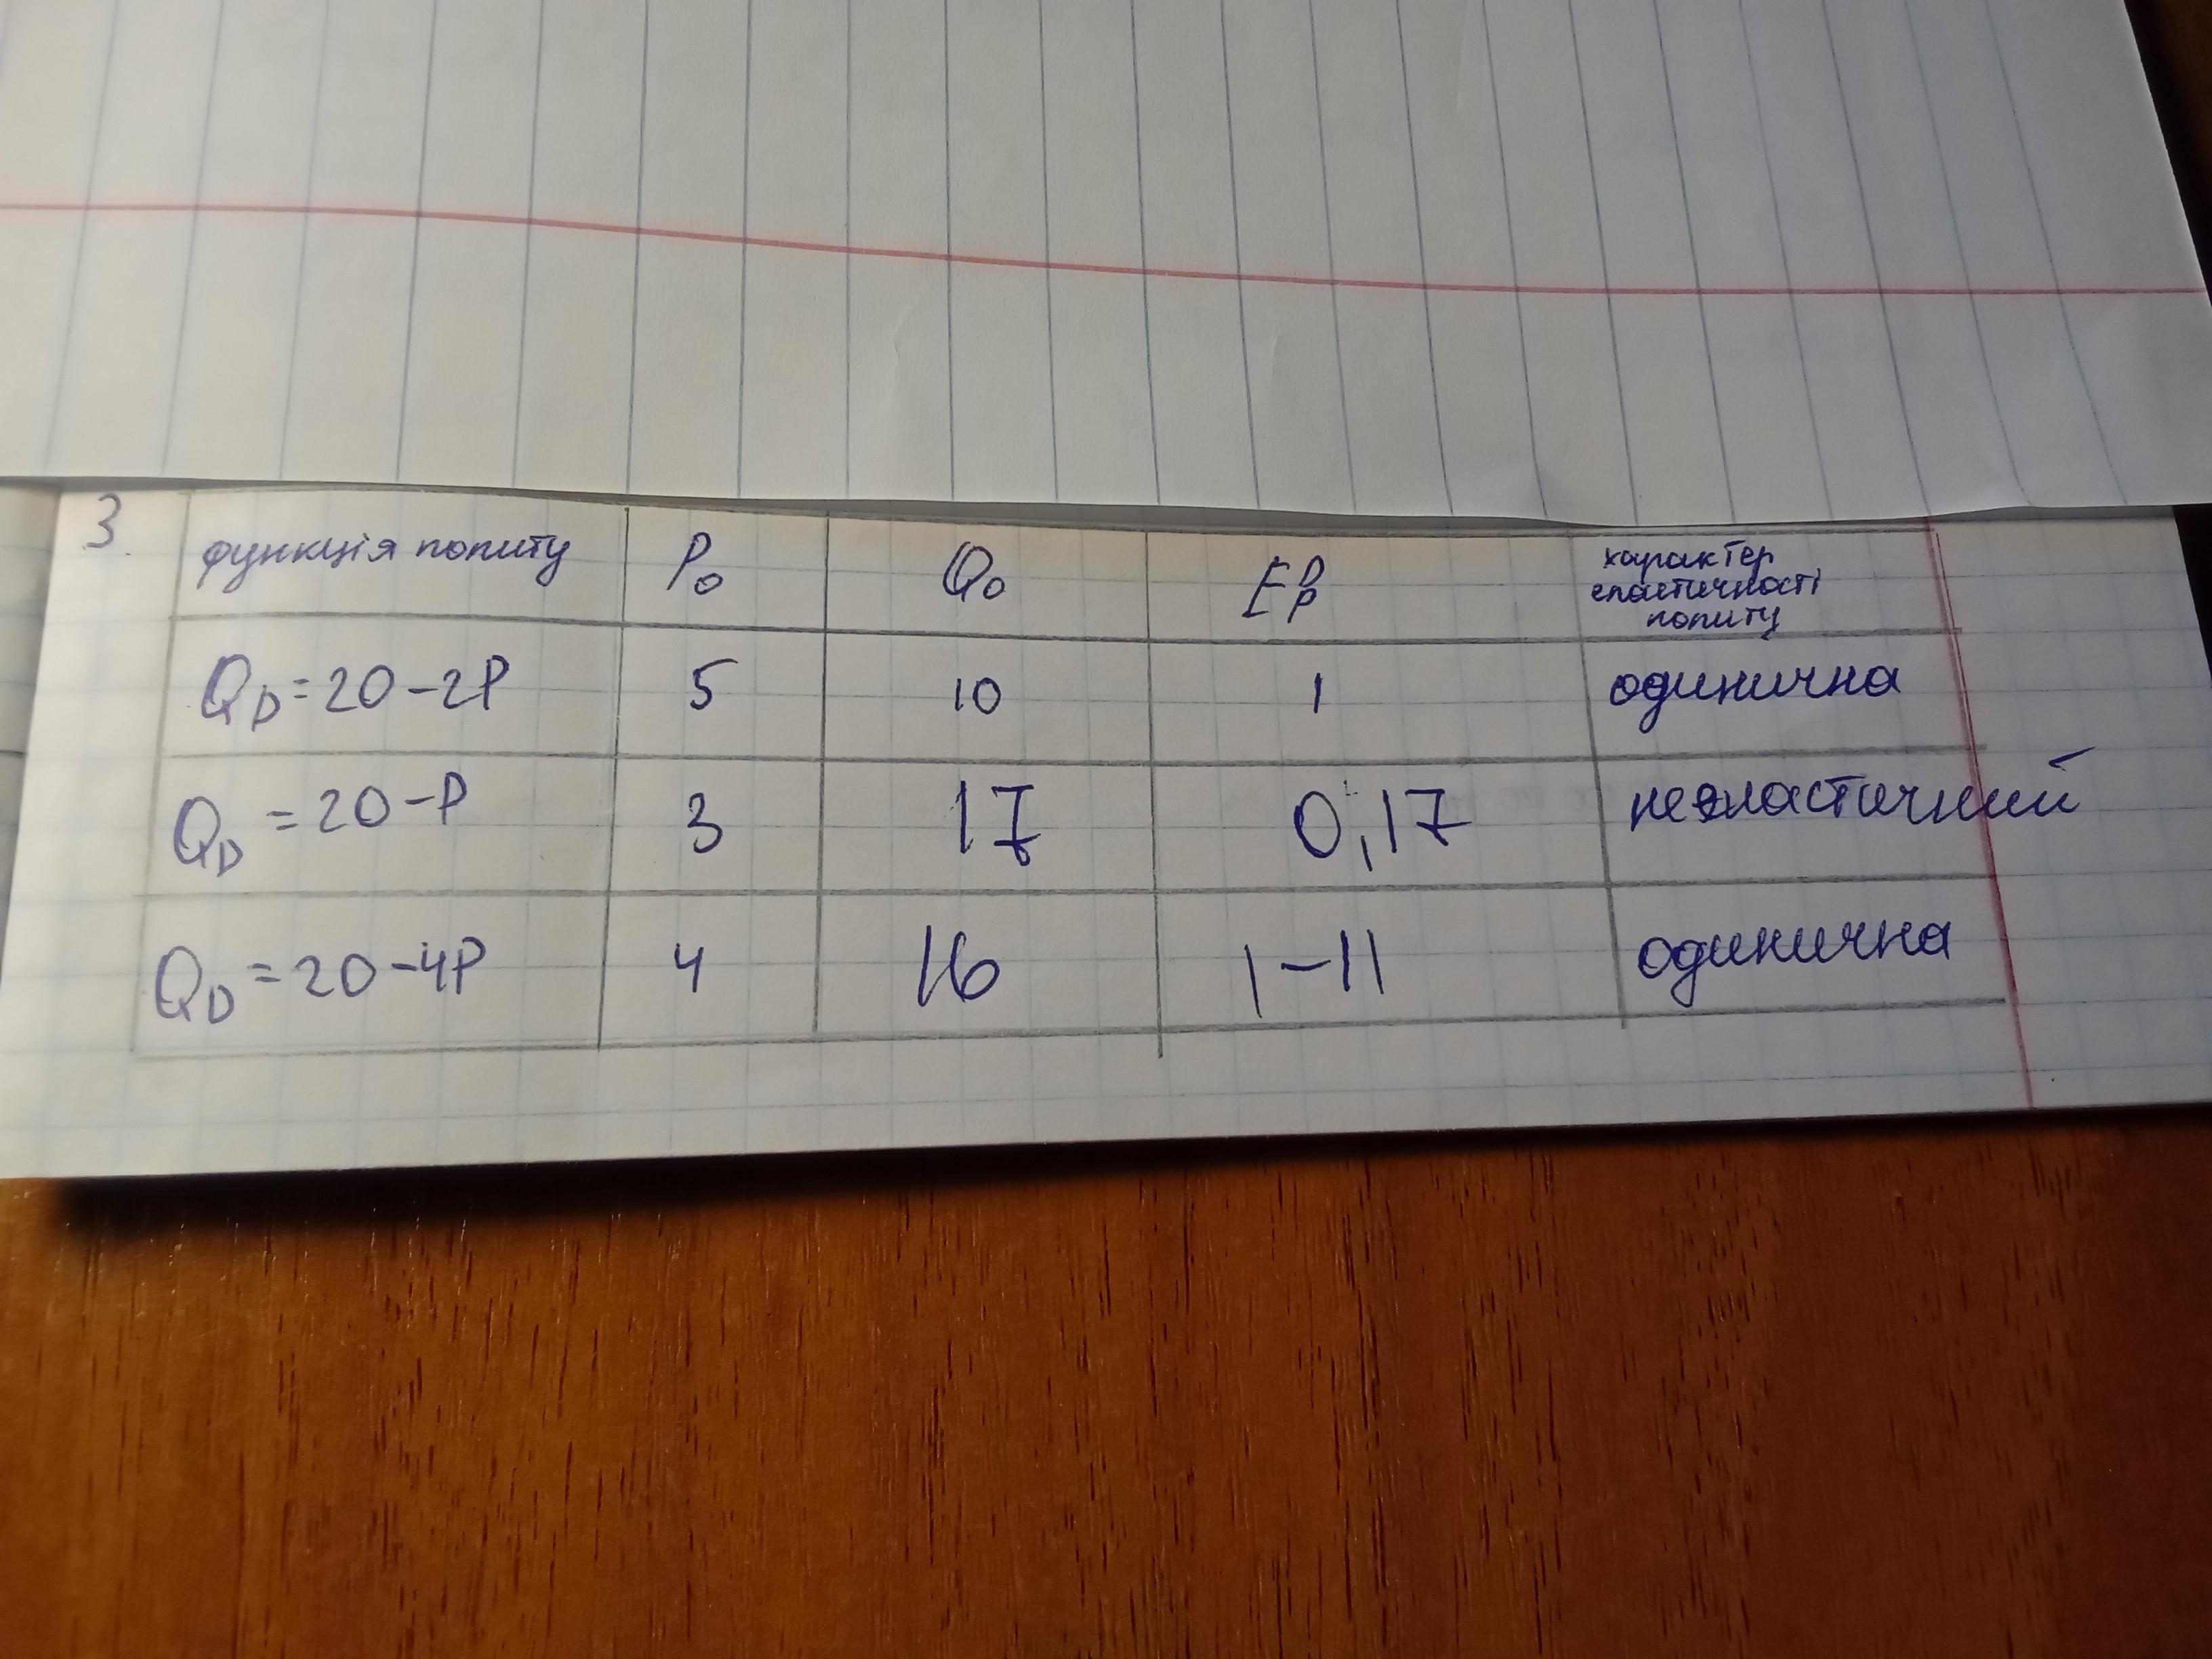 3. функція попиту P₀ Q₀ E P D характер
еластичності
попиту
Q_D = 20 - 2P 5 10 1 одинична
Q_D = 20 - P 3 17 0,17 нееластичний
Q_D = 20 - 4P 4 16 1-11 одинична